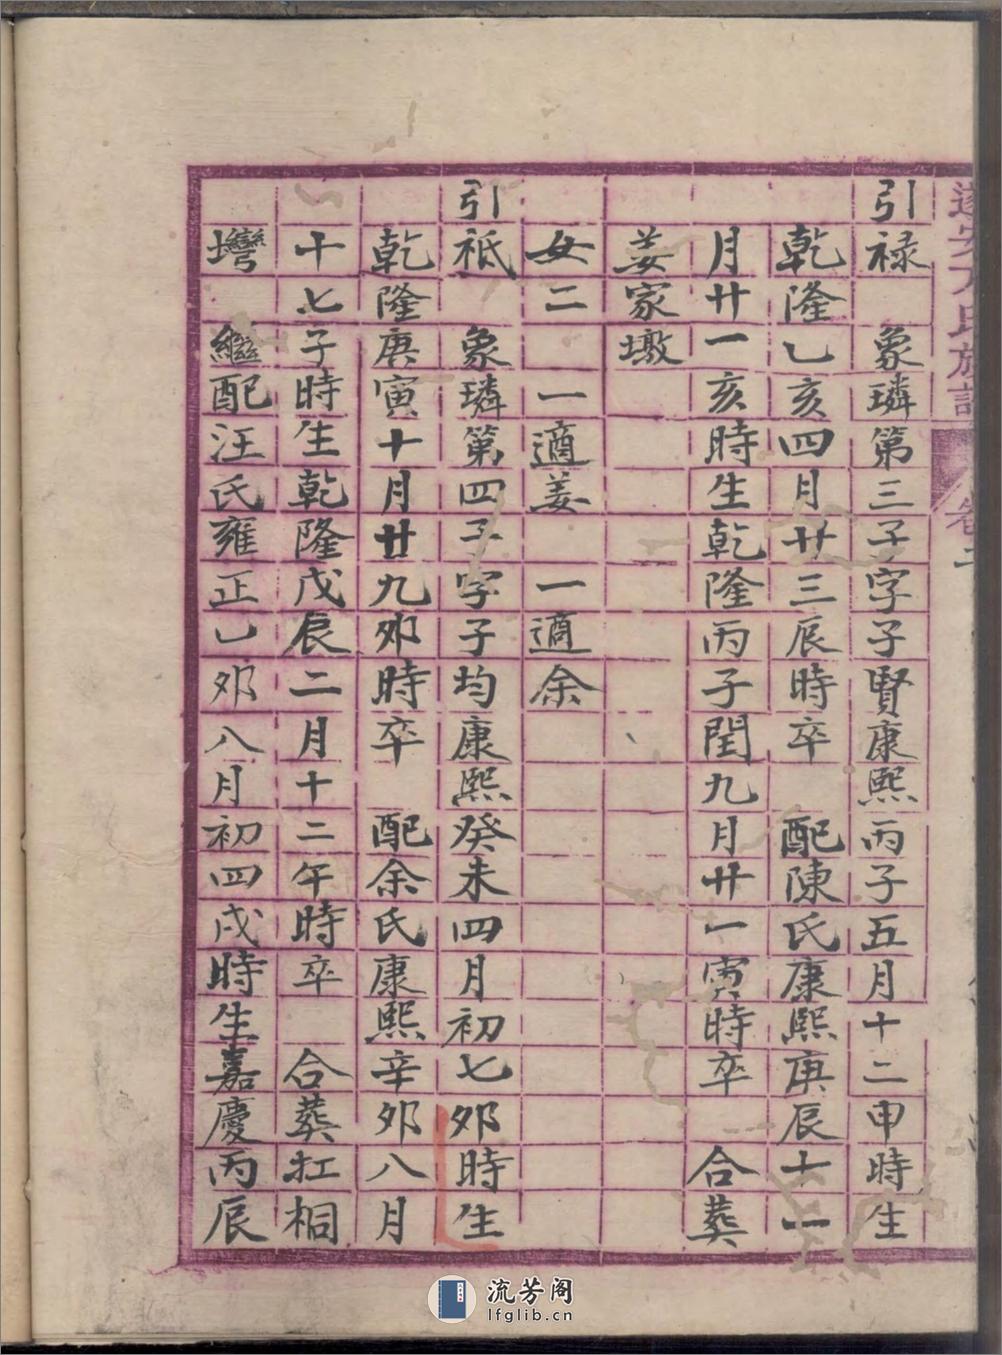 引祿　象璘第三子字子賢康熙丙子五月十二申時生
乾隆乙亥四月廿三辰時卒　配陳氏康熙庚辰十一
月廿一亥時生乾隆丙子閏九月廿一寅時卒　合葬
姜家墩
女二　一適姜　一適余
引祗　象璘第四子字子均康熙癸未四月初七夘時生
乾隆庚寅十月廿九夘時卒　配余氏康熙辛夘八月
十七子時生乾隆戊辰二月十二午時卒　合葬扛桐
塆　繼配汪氏雍正乙夘八月初四戌時生嘉慶丙辰
流芳阁
lfglib.cn